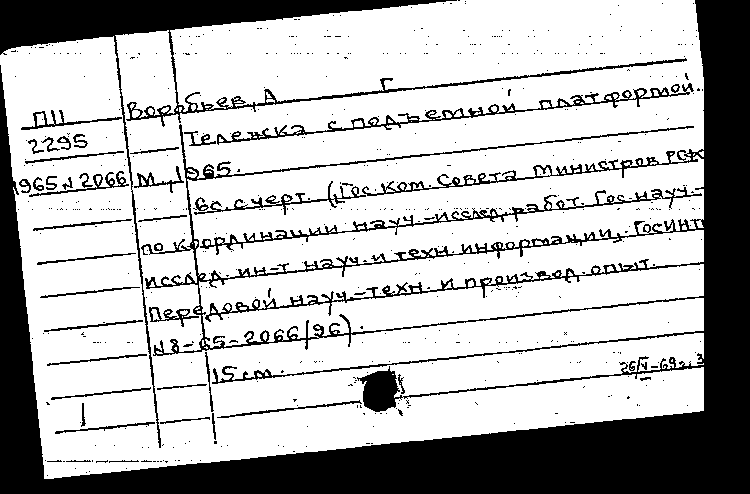 П11 Воробьев, А Г
2295 Тележка с подъемной платформой.
1965 N 2066 М., 1965.
6с. с черт. (Гос. Ком. Совета Министров РСФ
по координации науч.-исслед. работ. Гос. науч.-
исслед. ин-т науч. и техн. информации. ГОСИНТИ
Передовой науч.-техн. и производ. опыт.
N 8-65-2066/96).
15 см.
26/V-69г. З